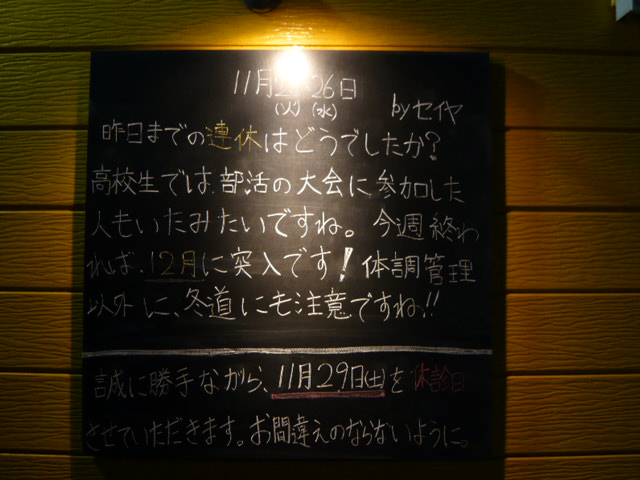 11月2 26日
(火) (水) byセイヤ
昨日までの連休はどうでしたか?
高校生では、部活の大会に参加した
人もいたみたいですね。今週終わ
れば、12月に突入です!体調管理
以外に、冬道にも注意ですね!!
誠に勝手ながら、11月29日(土)を休診日
させていただきます。お間違えのならないように。